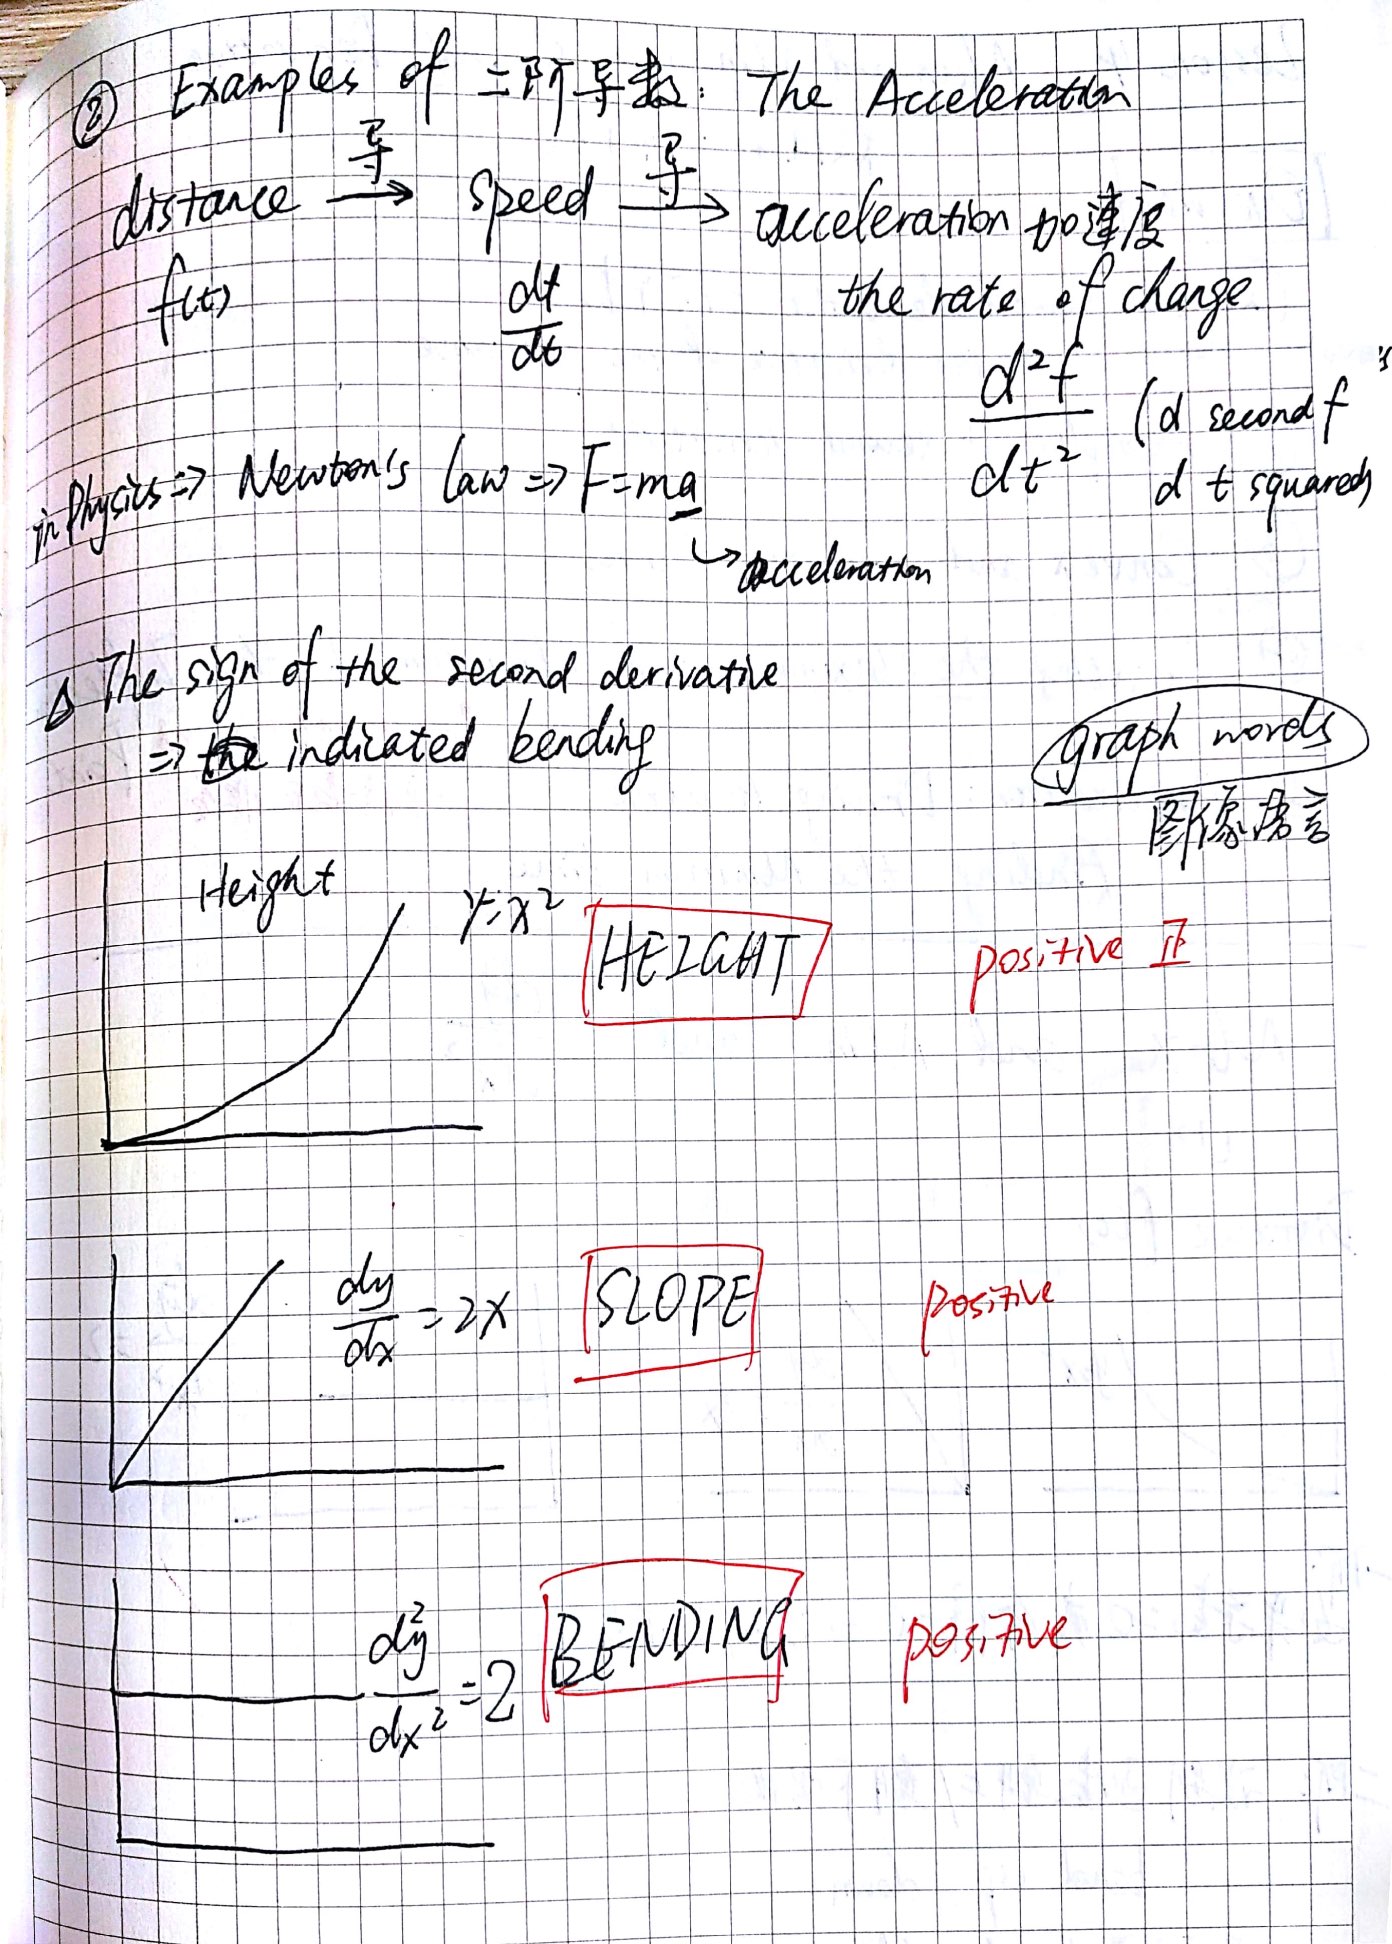 ② Examples of 二阶导数: The Acceleration
distance 导→ speed 导→ acceleration 加速度
f(t) df/dt the rate of change
d²f/dt² (d second f
d t squared)
in Physics => Newton's law => F=ma
↳ acceleration
△ The sign of the second derivative
=> indicated bending
graph words
图像语言
Height y=x² HEIGHT positive 正
dy/dx = 2x SLOPE positive
d²y/dx² = 2 BENDING positive